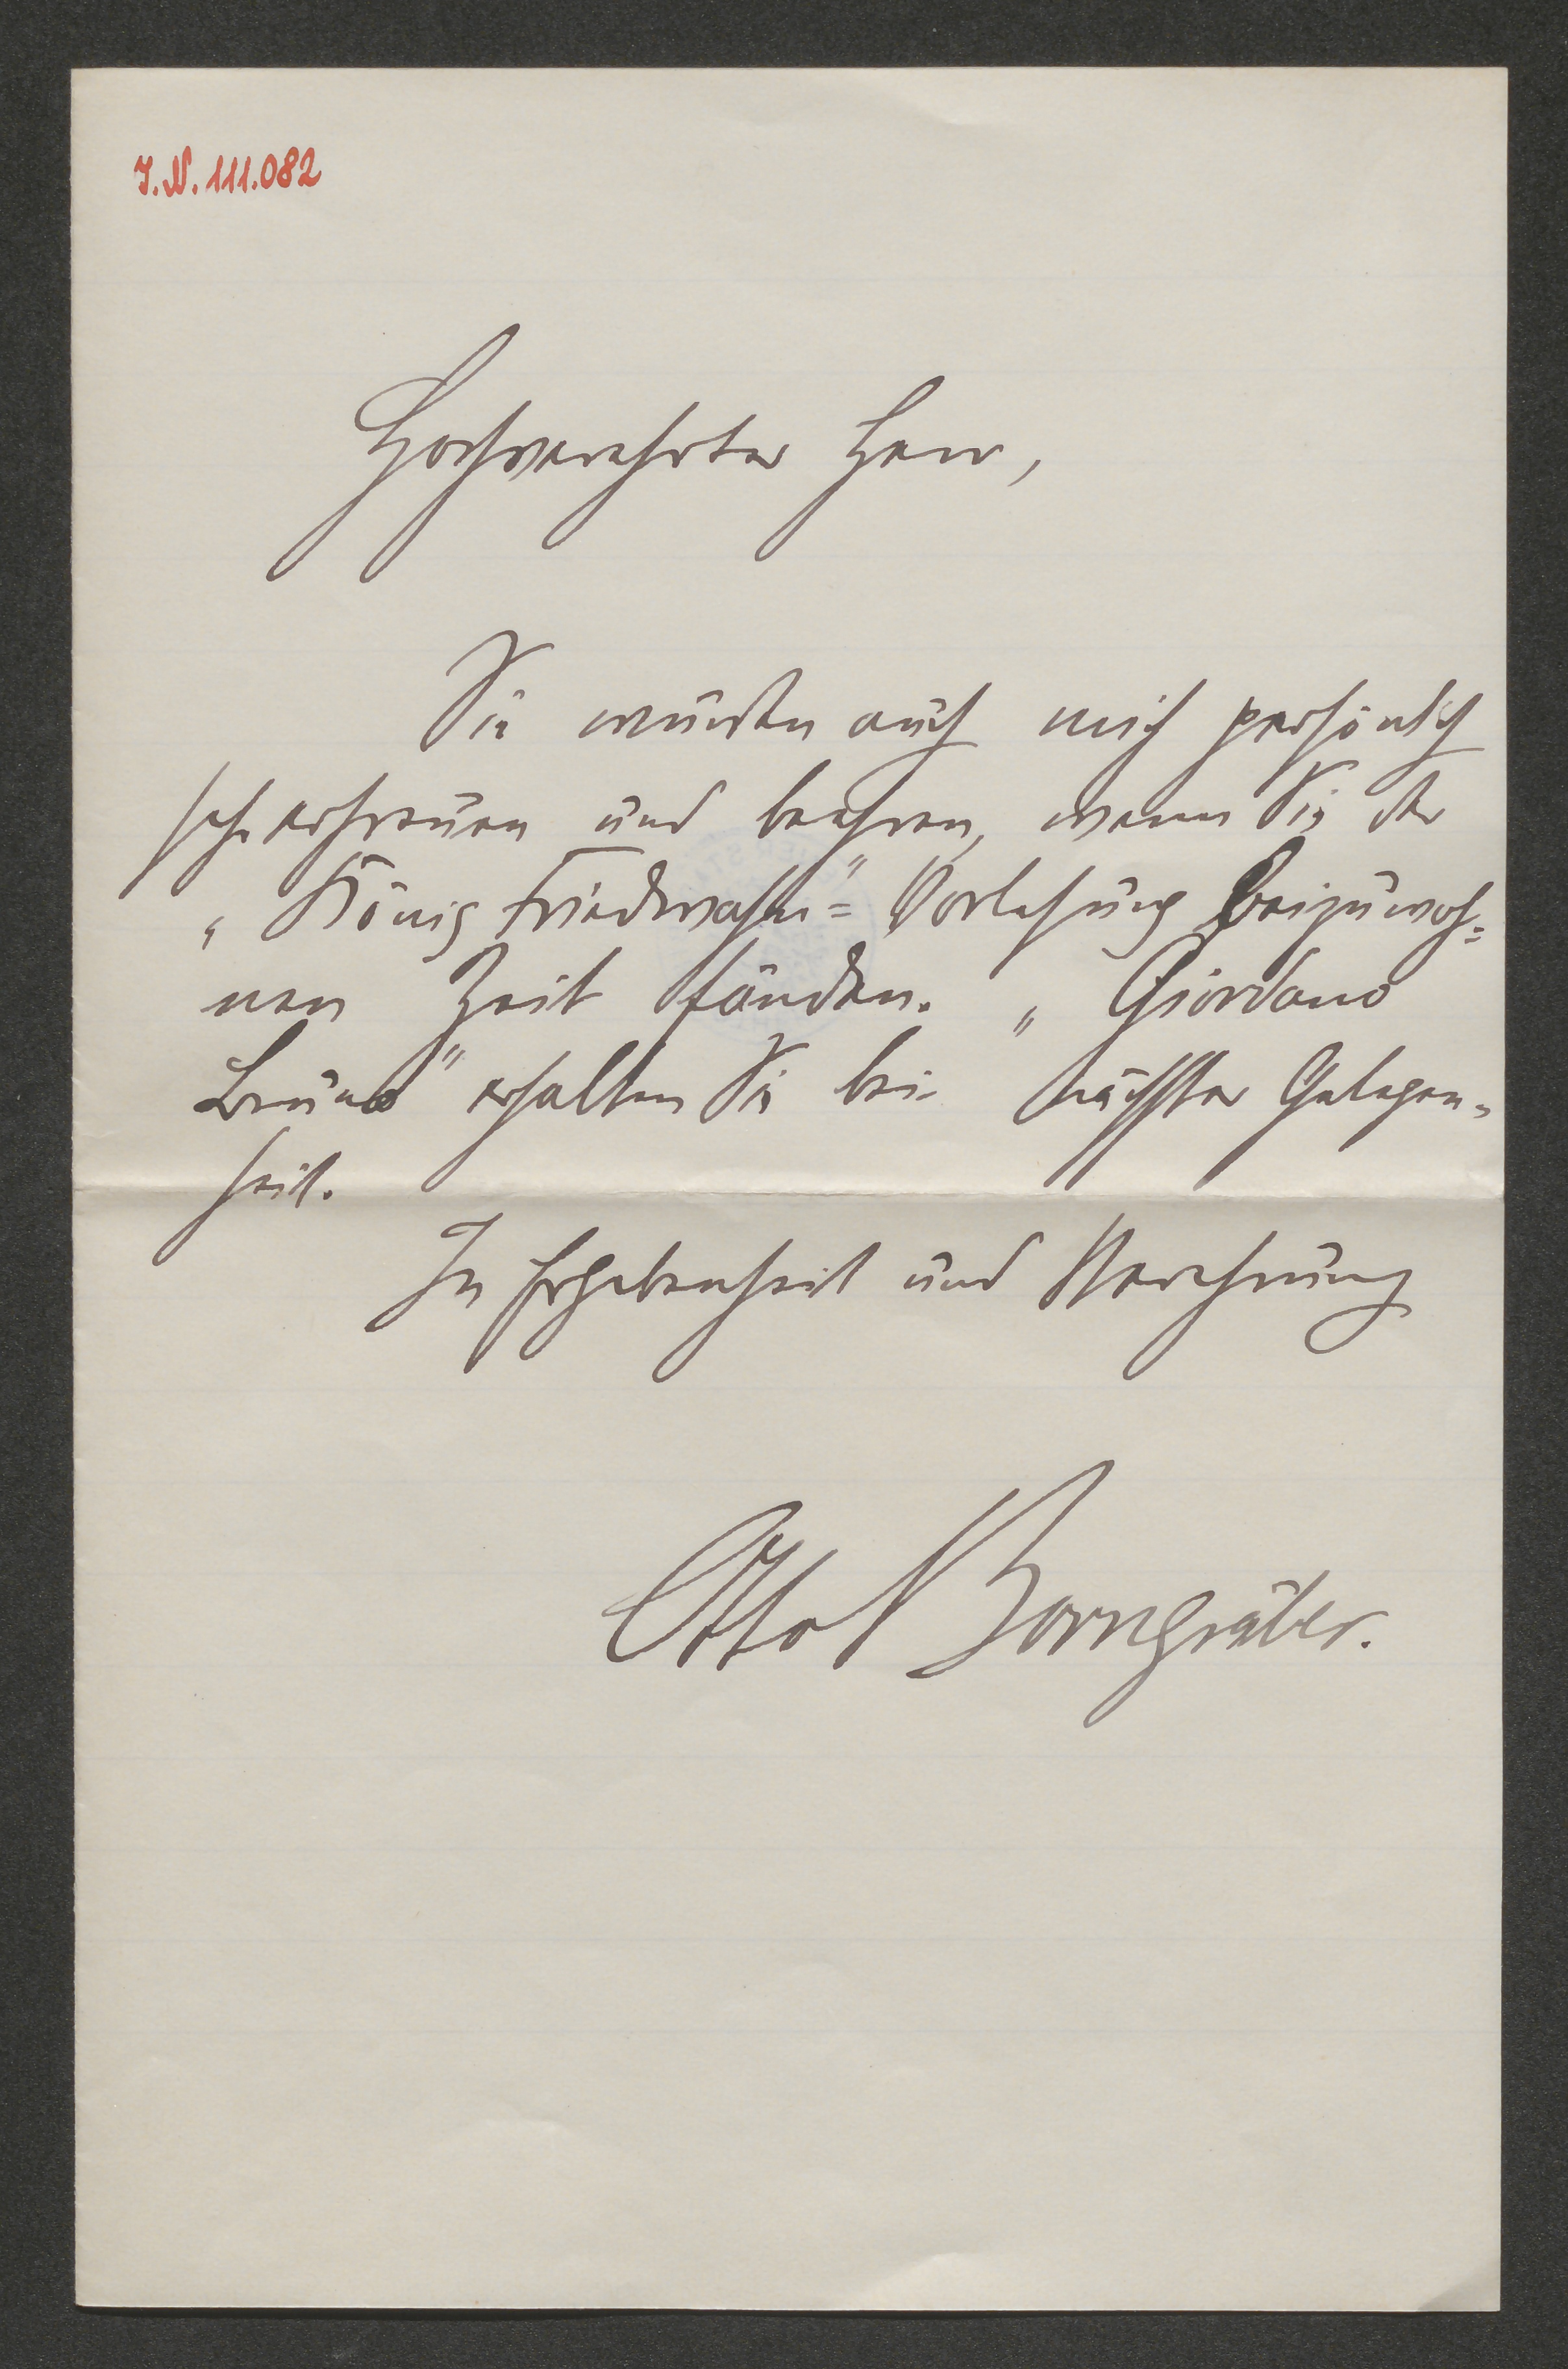 J.N. 111.082
Hochverehrter Herr,
Sie würden auch mich persönlich
sehr erfreuen und beehren, wenn Sie der
„König Friedwahn“= Vorlesung beizuwoh=
nen Zeit fänden. „Giordano
Bruno“ erhalten Sie bei nächster Gelegen=
heit.
In Ergebenheit und Verehrung
Otto Borngräber.